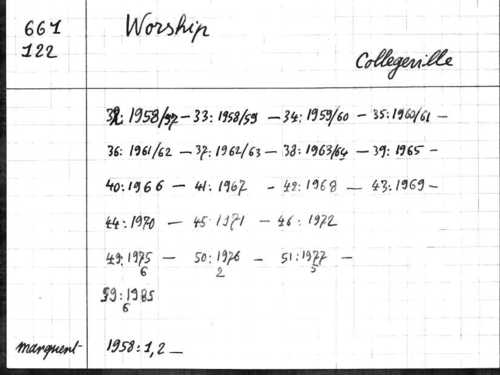 661
122
Worship
Collegeville
32: 1958/57 - 33: 1958/59 - 34: 1959/60 - 35: 1960/61 -
36: 1961/62 - 37: 1962/63 - 38: 1963/64 - 39: 1965 -
40: 1966 - 41: 1967 - 42: 1968 - 43: 1969 -
44: 1970 - 45: 1971 - 46: 1972
49: 1975 - 50: 1976 - 51: 1977 -
6 2 5
59: 1985
6
manquent 1958: 1, 2 -